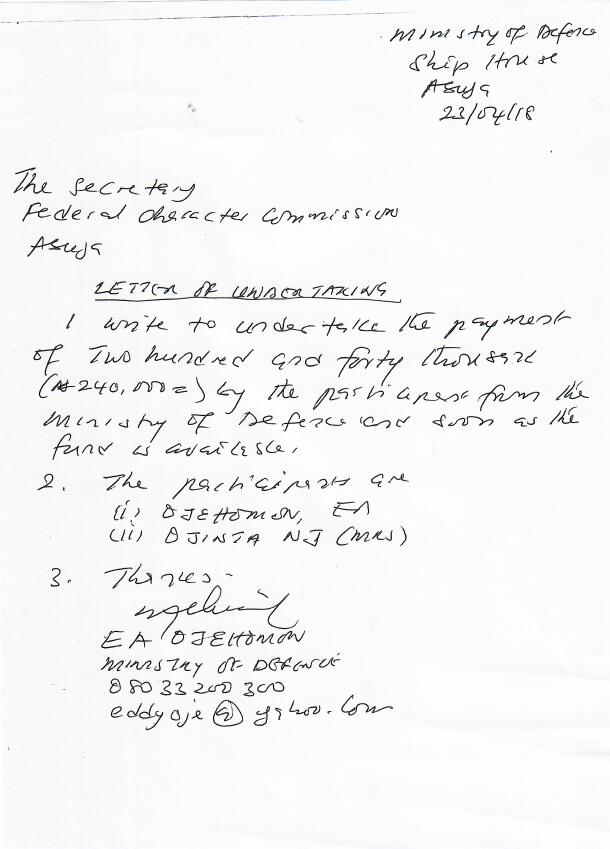 Ministry of Defence
Ship House
Abuja
23/04/18
The Secretary
Federal Character Commission
Abuja
LETTER OF UNDERTAKING
I write to undertake the payment
of Two hundred and forty thousand
(₦240,000=) by the participant from the
Ministry of Defence and soon as the
fund is available.
2. The participants are
(i) OJEHOMON, EA
(ii) OJINTA NJ (MRS)
3. Thanks.
EA OJEHOMON
MINISTRY OF DEFENCE
08033200300
eddyoje@yahoo.com